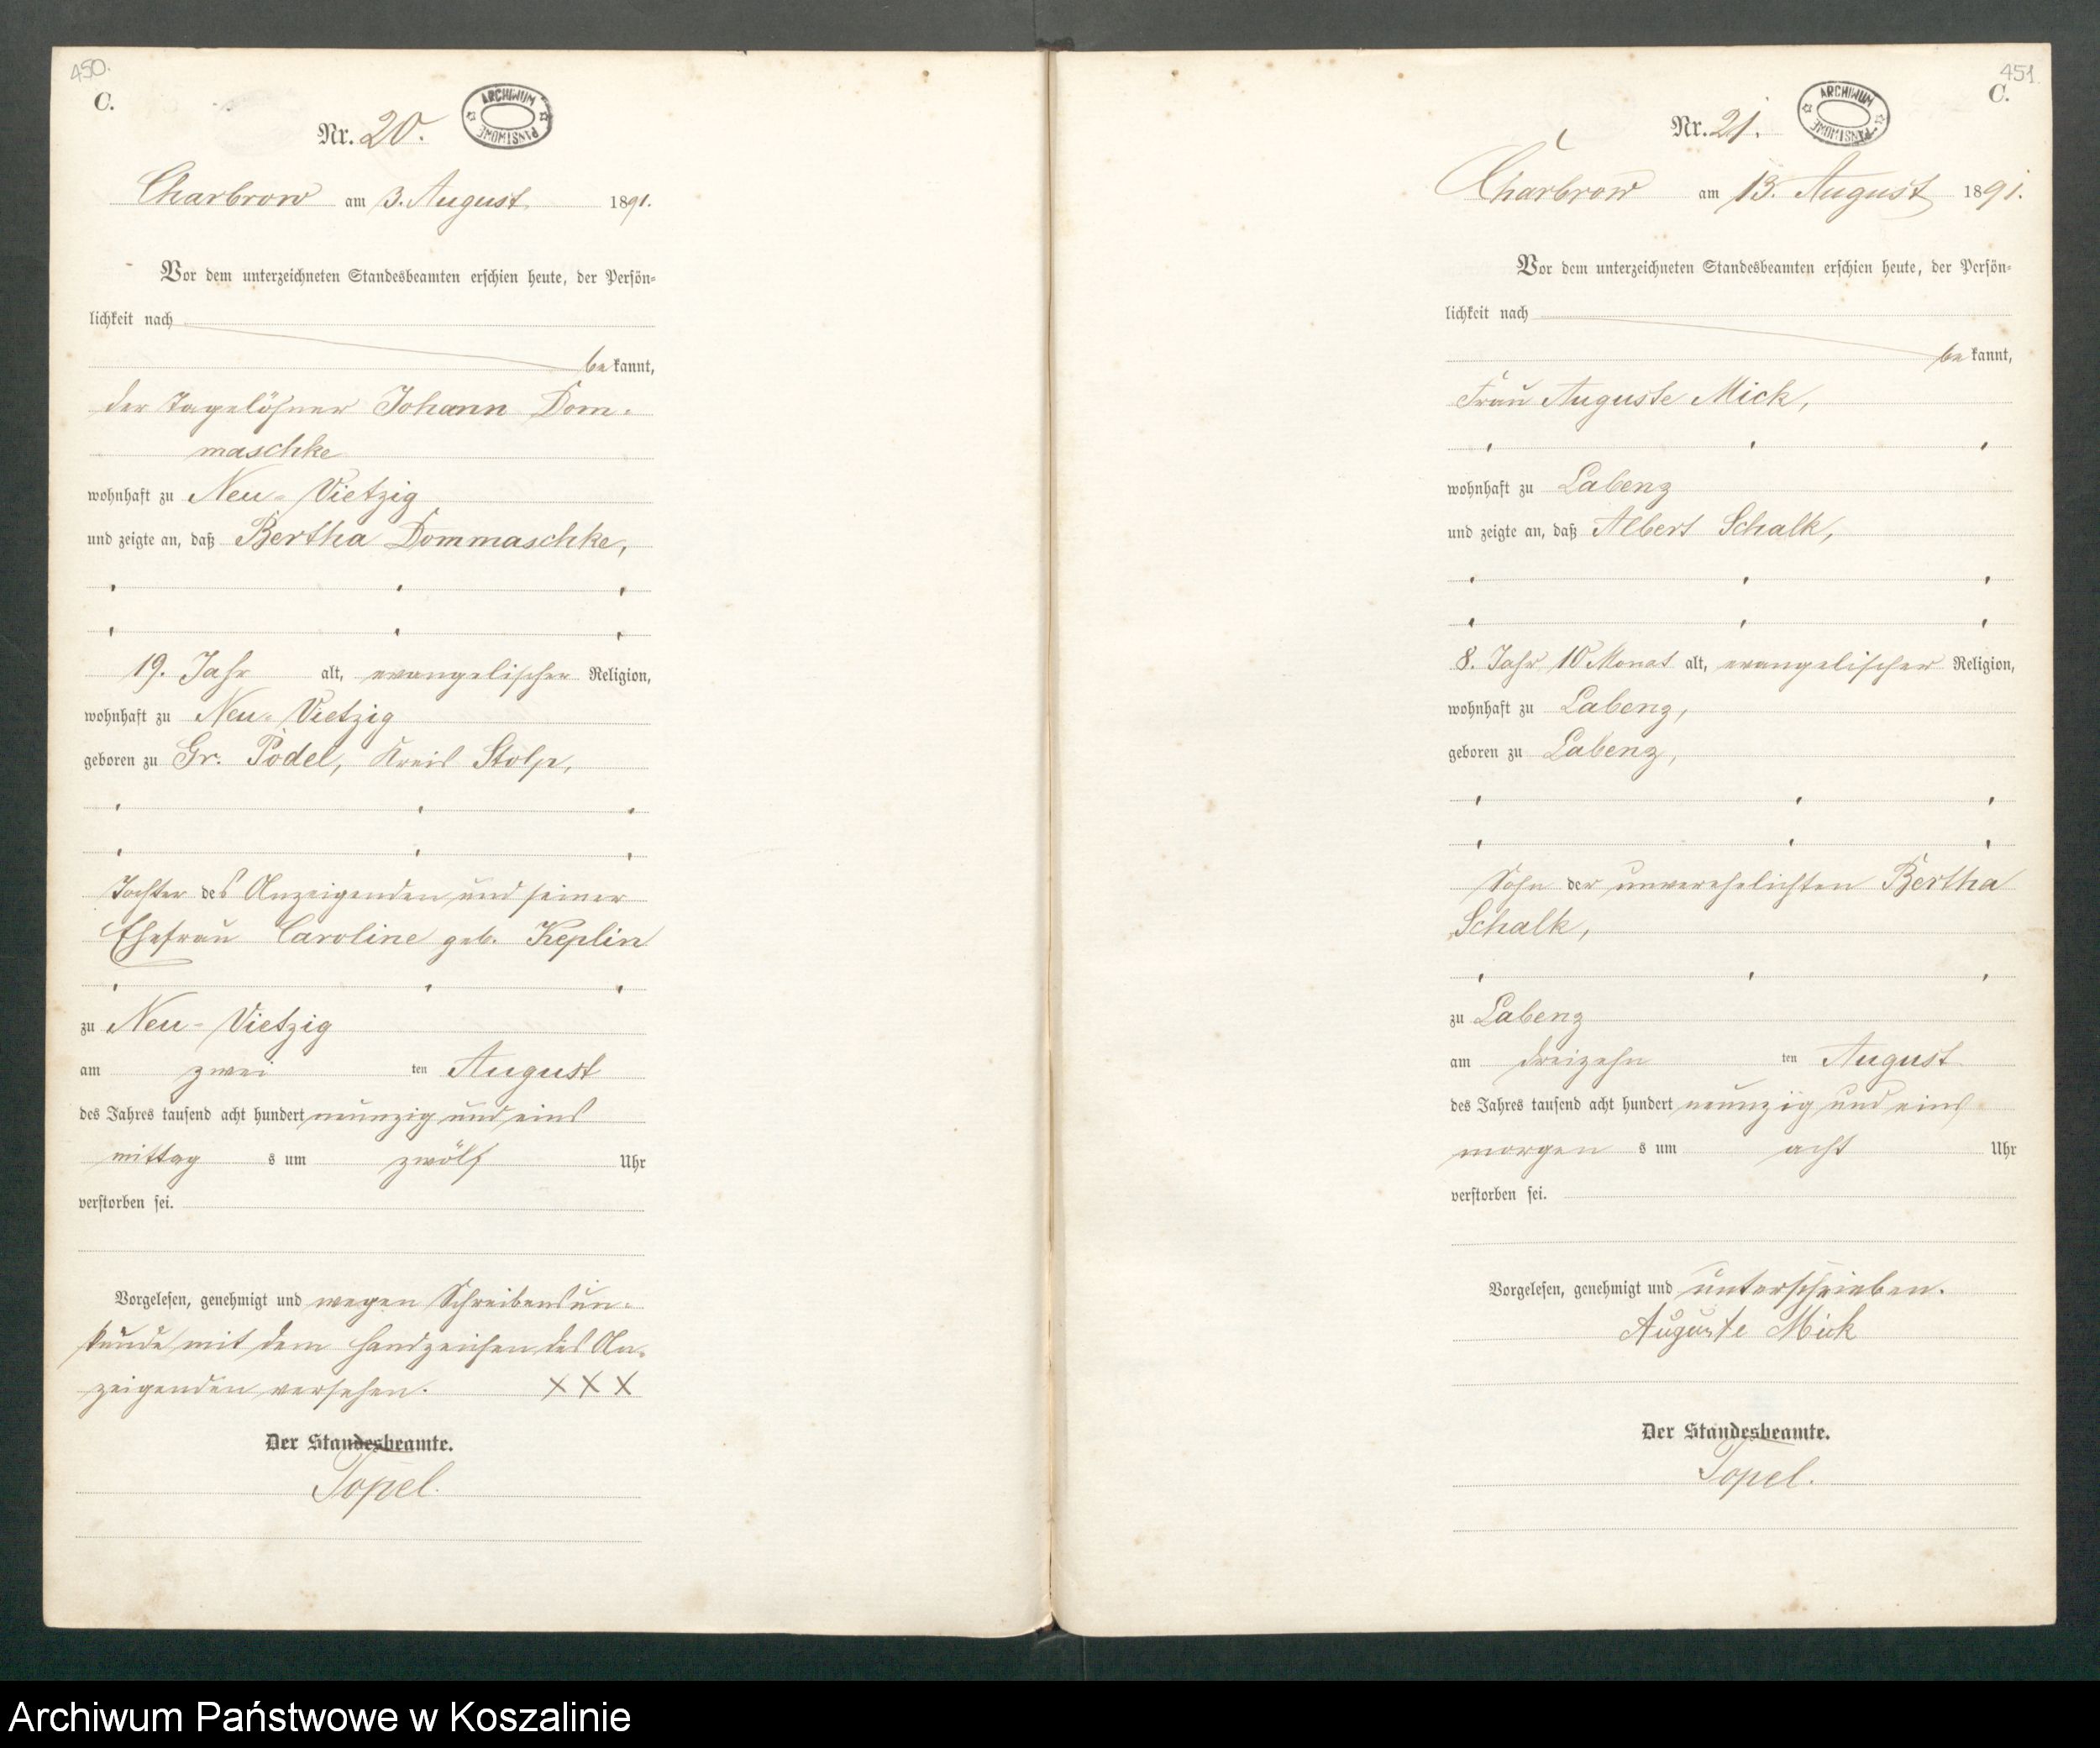 450.
C.
Nr. 20.
ARCHIWUM PAŃSTWOWE
Charbrow am 3. August 1891.
Vor dem unterzeichneten Standesbeamten erschien heute, der Persön=
lichkeit nach
be kannt,
der Tagelöhner Johann Dom=
maschke
wohnhaft zu Neu-Vietzig
und zeigte an, daß Bertha Dommaschke,
19. Jahr alt, evangelischer Religion,
wohnhaft zu Neu-Vietzig
geboren zu Gr. Podel, Kreis Stolp,
Tochter des Anzeigenden und seiner
Ehefrau Caroline geb. Keplin
zu Neu-Vietzig
am zwei ten August
des Jahres tausend acht hundert neunzig und eins
mittag s um zwölf Uhr
verstorben sei.
Vorgelesen, genehmigt und wegen Schreibensun=
kunde mit dem Handzeichen des An=
zeigenden versehen. XXX
Der Standesbeamte.
Topel.
451
C.
Nr. 21.
ARCHIWUM PAŃSTWOWE
Charbrow am 13. August 1891.
Vor dem unterzeichneten Standesbeamten erschien heute, der Persön=
lichkeit nach
be kannt,
Frau Auguste Mick,
wohnhaft zu Labenz
und zeigte an, daß Albert Schalk,
8. Jahr 10 Monat alt, evangelischer Religion,
wohnhaft zu Labenz,
geboren zu Labenz,
Sohn der unverehelichten Bertha
Schalk,
zu Labenz
am dreizehn ten August
des Jahres tausend acht hundert neunzig und eins
morgen s um acht Uhr
verstorben sei.
Vorgelesen, genehmigt und unterschrieben.
Auguste Mick
Der Standesbeamte.
Topel.
Archiwum Państwowe w Koszalinie